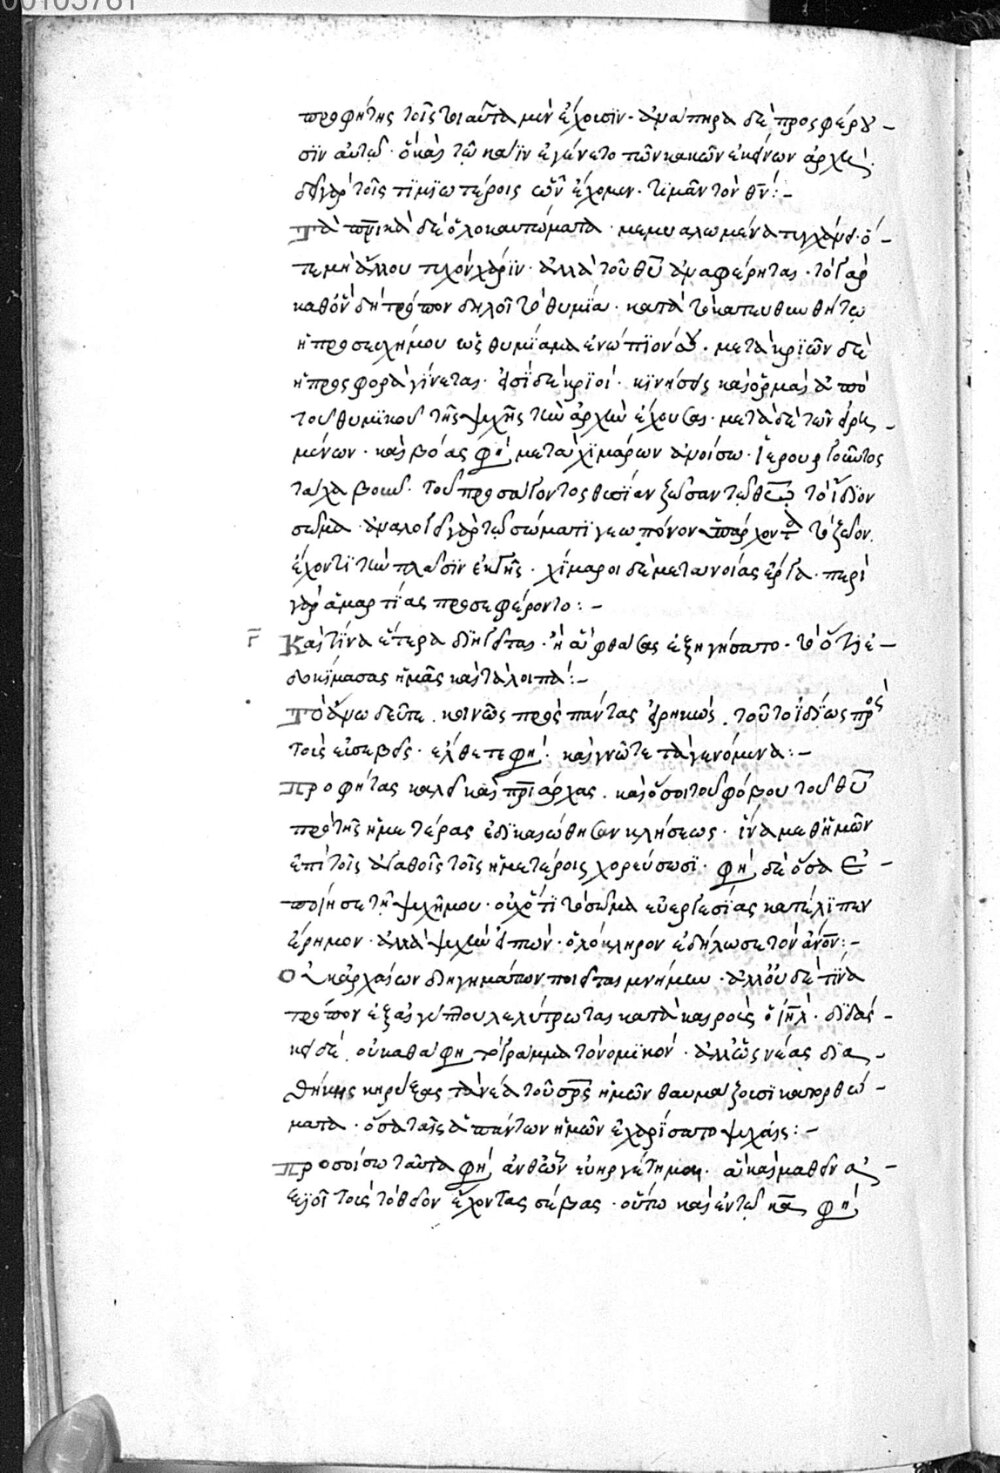 00105761
προφήτης τοῖς τοιαῦτα μὲν ἔχουσιν· ἀνάπηρα δὲ προσφέρου-
σιν αὐτῷ· ὃ καὶ τῷ κάϊν ἐγένετο τῶν κακῶν ἐκείνων ἀρχή·
δεῖ γὰρ τοῖς τιμιωτέροις ὧν ἔχομεν· τιμᾶν τὸν θν:-
Τὰ δὲ ὁλοκαυτώματα· μεμυαλωμένα τυγχάνει· ὅ-
τε μὴ ἄλλου τινὸς χάριν· ἀλλὰ τοῦ θυ ἀναφέρηται· τὸ γὰρ
καθ' ὃν δὴ τρόπον δηλοῖ τὸ θυμία· κατὰ τὸ κατευθυνθήτω
ἡ προσευχή μου ὡς θυμίαμα ἐνώπιόν σου· μετὰ κριῶν δὲ
ἡ προσφορὰ γίνεται· εἰσὶ δὲ κριοί· κινήσεις καὶ ὁρμαὶ ἀπὸ
τοῦ θυμικοῦ τῆς ψυχῆς τὴν ἀρχὴν ἔχουσαι· μετὰ δὲ τῶν εἰρη-
μένων· καὶ βόας φησὶ μετὰ χιμάρων ἀνοίσω· ἱερουργοῦντος
τάχα βοῦν· τοῦ προσάγοντος θυσίαν ζῶσαν τῷ θεῷ τὸ ἴδιον
σῶμα· ἀναλογεῖ γὰρ τῷ σώματι γεωπόνον ὑπάρχον τὸ ζῷον.
ἔχοντι τὴν πλάσιν ἐκ γῆς· χίμαροι δὲ μετανοίας ἔργα· περὶ
γὰρ ἁμαρτίας προσεφέροντο:-
Γ Καὶ τίνα ἕτερα διηγεῖται· ἢ ἃ φθάσας ἐξηγήσατο· τὸ ὅτι ἐ-
δοκίμασας ἡμᾶς καὶ τὰ λοιπά:-
Τὸ ἄνω δεῦτε κοινῶς πρὸς πάντας εἰρηκώς, τοῦτο ἰδίως πρὸς
τοὺς εὐσεβεῖς· ἔλθετε φησὶ καὶ γνῶτε τὰ γενόμενα:-
Προφήτας καλεῖ καὶ πριάρχας· καὶ ὅσοι τοῦ φόβου τοῦ θυ
πρὸ τῆς ἡμετέρας ἐδικαιώθησαν κλήσεως· ἵνα μεθ' ἡμῶν
ἐπὶ τοῖς ἀγαθοῖς τοῖς ἡμετέροις χορεύσωσι· φησὶ δὲ ὅσα ἐ-
ποίησε τῇ ψυχῇ μου· οὐχ ὅτι τὸ σῶμα εὐεργεσίας κατέλιπεν
ἔρημον· ἀλλὰ ψυχὴν εἰπών· ὁλόκληρον ἐδήλωσε τὸν ἄνον:-
Οὐκ ἀρχαίων διηγημάτων ποιεῖται μνήμην· ἀλλ' οὐδὲ τίνα
τρόπον ἐξ αἰγύπτου λελύτρωται κατὰ καιροὺς ὁ ιηλ· διδάσ-
κει δέ, οὐ καθά φησι τὸ γράμμα τὸ νομικόν· ἀλλ' ὡς νέας δια-
θήκης κήρυκας τὰ νέα τοῦ σρς ἡμῶν θαυμάζουσι κατορθώ-
ματα· ὅσα ταῖς ἁπάντων ἡμῶν ἐχαρίσατο ψυχαῖς:-
Προσοίσω ταῦτα φησὶ ἀνθ' ὧν εὐηργέτημαι· ἃ καὶ μαθεῖν ἀ-
ξιοῖ τοὺς τὸ θεῖον ἔχοντας σέβας· οὕτω καὶ ἐν τῷ κα φησὶ